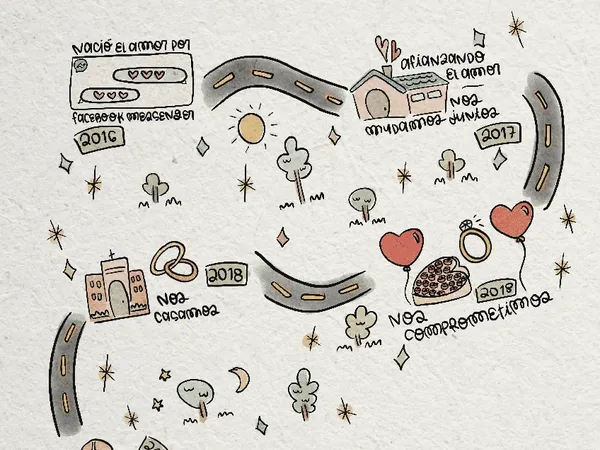 Nació el amor por
facebook messenger
2016
afianzando
el amor
Nos
mudamos juntos
2017
Nos
comprometimos
2018
Nos
casamos
2018